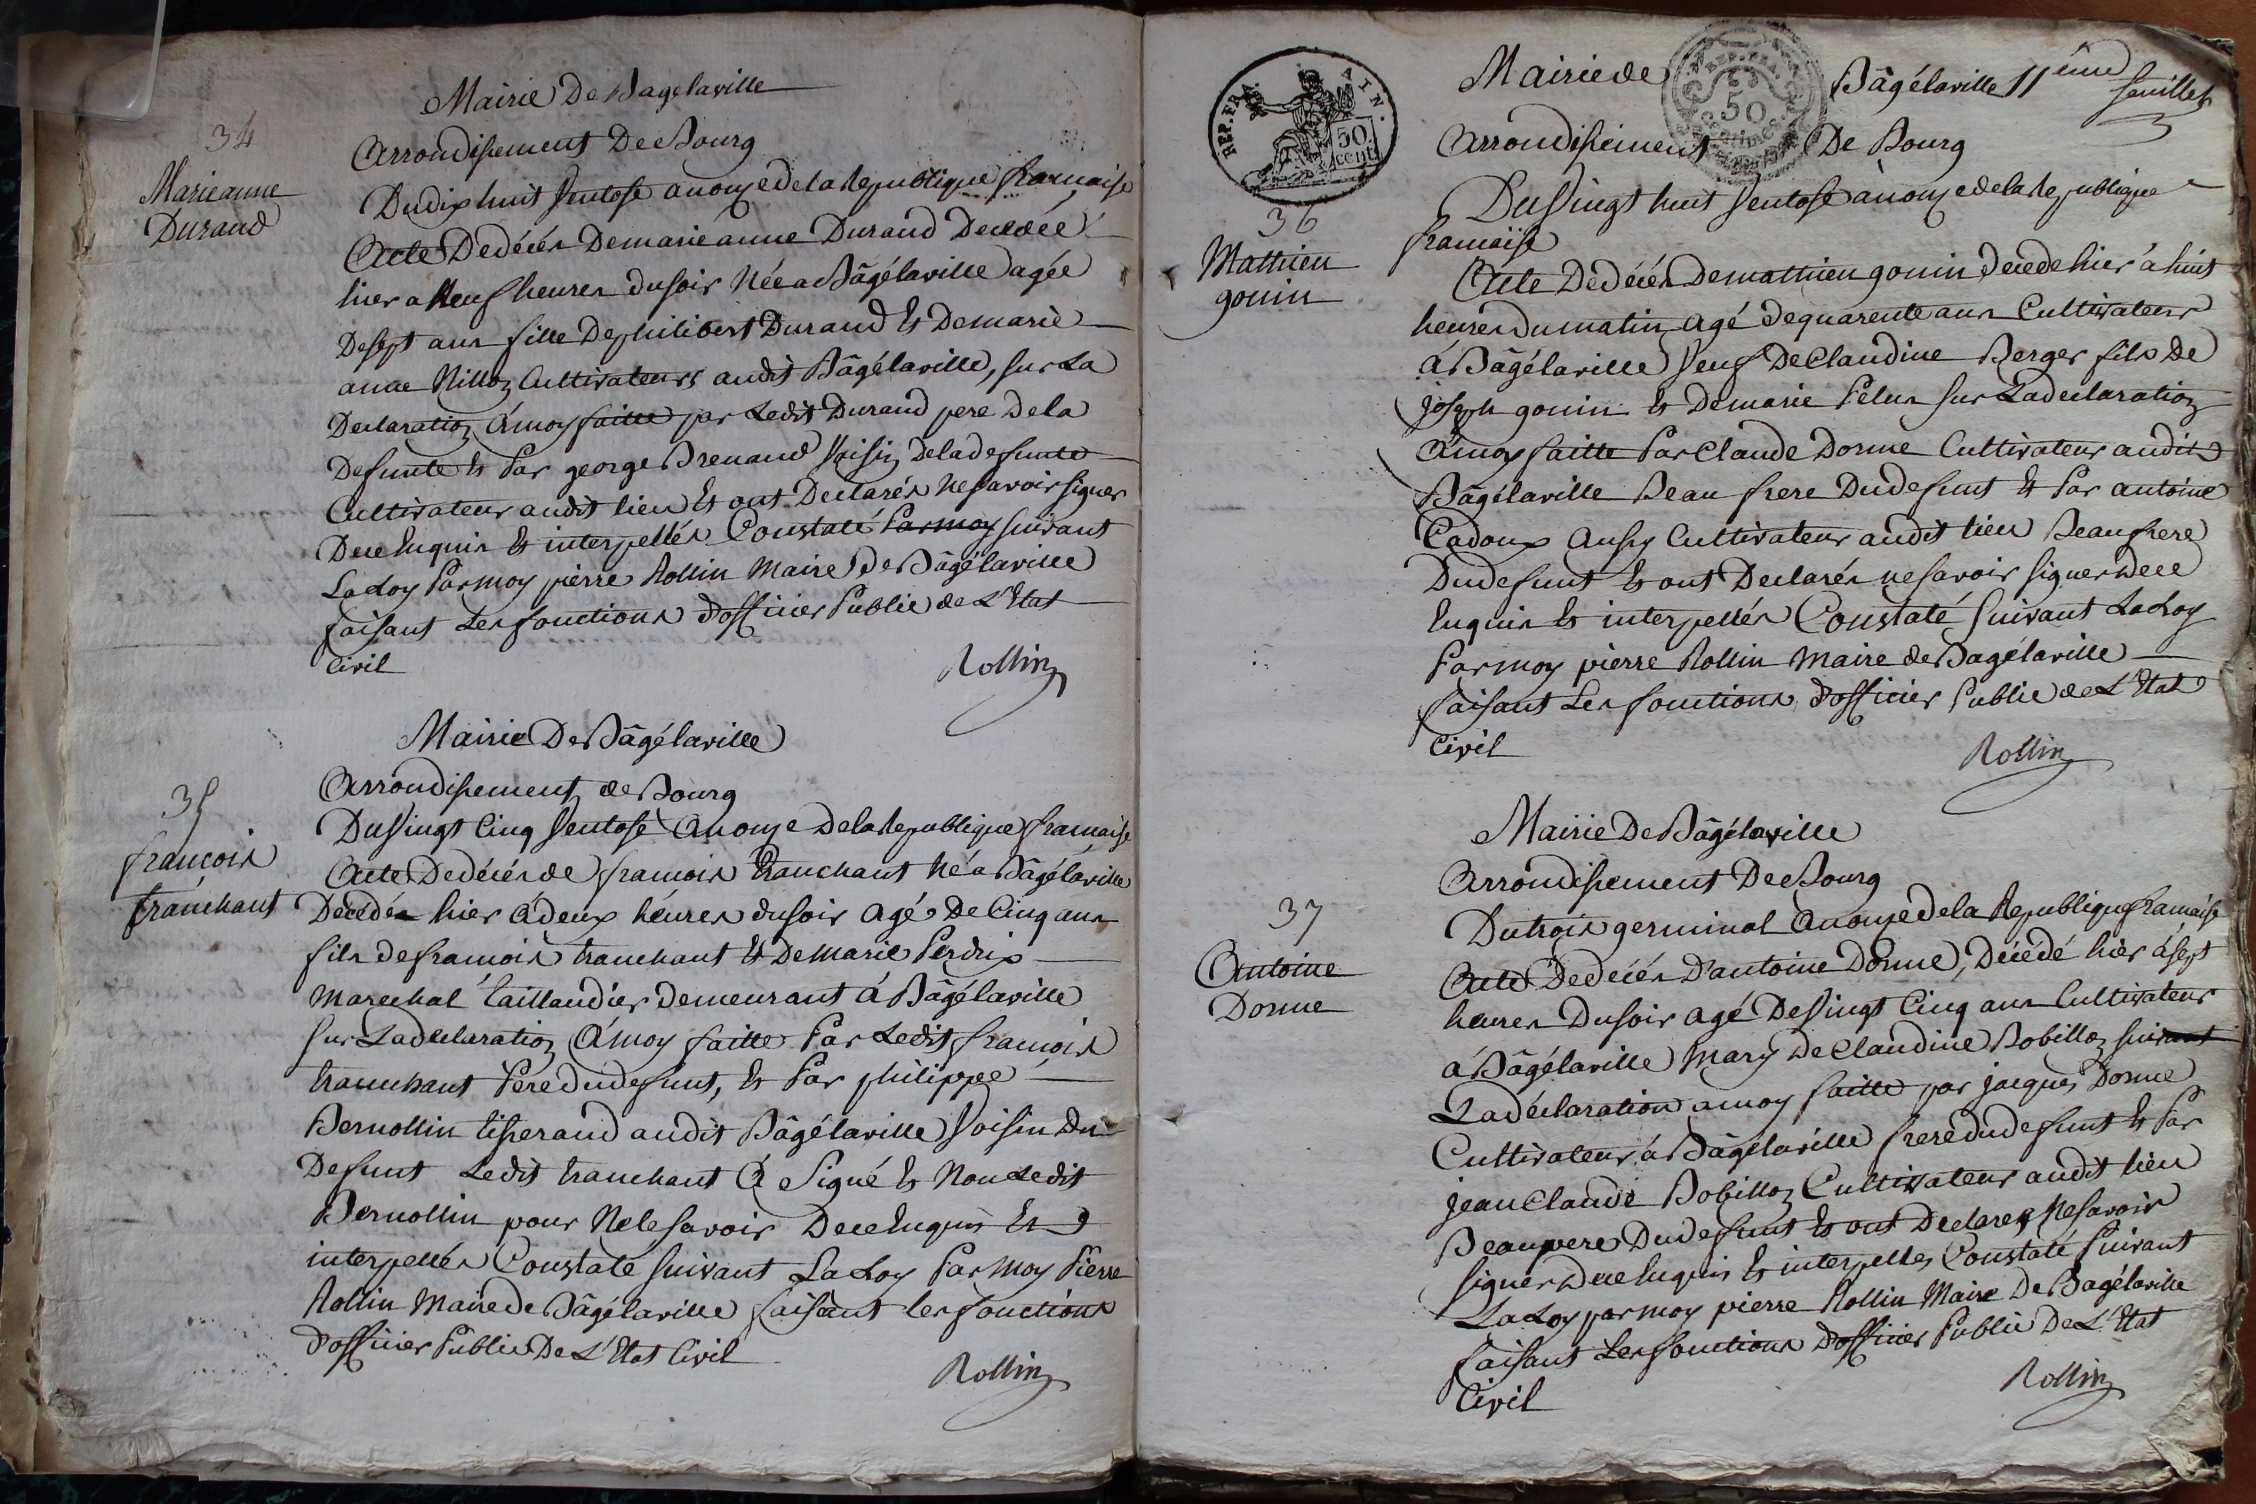 Mairie De Bagelaville
34
Marie anne
Durand
Arrondissement De Bourg
Du dix huit Ventose an onze de la Republique francaise
Acte De décés De marie anne Durand Decedéé
hier a Neuf heures du soir Née a Bâgélaville agée
De sept ans fille De philibert Durand Et De marie
anne Nillon Cultivateurs audit Bâgélaville, sur La
Declaration á moy faitte par Ledit Durand pere De la
Defunte Et Par george Brenand Voisin De la defunte
Cultivateur audit lieu Et ont Declarés Ne savoir signer
De ce Enquis Et interpellés Constaté Par moy suivant
La Loy Par moy pierre Rollin Maire De Bâgélaville
faisant Les fonctions d'officier Public de L'Etat
Civil
Rollin
Mairie De Bâgélaville
35
françois
tranchant
Arrondissement de Bourg
Du Vingt Cinq Ventose An onze De la Republique francaise
Acte De décés de francois tranchant Né a Bâgélaville
Décédés hier á deux heures du soir Agé De Cinq ans
fils de francois tranchant Et De marie Perdrix
Marechal taillandier demeurant á Bâgélaville
sur La declaration á moy faitte Par Ledit francois
tranchant Pere du defunt, Et Par philippe
Bernollin tisserand audit Bâgélaville Voisin Du
Defunt Ledit tranchant á Signé Et Non Ledit
Bernollin pour Ne le savoir De ce Enquis Et
interpellés Constaté suivant La Loy Par moy Pierre
Rollin Maire de Bâgélaville faisant les fonctions
d'officier Public De L'Etat Civil
Rollin
REP. FRA. AIN.
50
cent.
REP. FRA.
50
centimes
Mairie de Bâgélaville 11ème
feuillet
Arrondissement De Bourg
36
Mathieu
gonin
Du Vingt huit Ventose an onze de la Republique
francaise
Acte De décés De mathieu gonin décédé hier á huit
heures du matin agé de quarente ans Cultivateur
á Bâgélaville Veuf De Claudine Berger fils De
joseph gonin Et De marie Felus sur La declaration
á moy faitte Par Claude Dorme Cultivateur audit
Bâgélaville Beau frere Du defunt Et Par antoine
Cadoux Aussy Cultivateur audit lieu Beau frere
Du defunt Et ont Declarés ne savoir signer De ce
Enquis Et interpellés Constaté suivant La Loy
Par moy pierre Rollin Maire de Bagélaville
faisant Les fonctions d'officier Public de L'Etat
Civil
Rollin
Mairie De Bâgélaville
Arrondissement De Bourg
37
Antoine
Dorme
Du trois germinal An onze de la Republique francaise
Acte De décés D'antoine Dorme, Décédé hier á sept
heures Du soir agé De Vingt Cinq ans Cultivateur
á Bâgélaville Mary De Claudine Robillon suivant
La déclaration a moy faitte par jacques Dorme
Cultivateur á Bâgélaville frere du defunt Et Par
jean Claude Robillon Cultivateur audit lieu
Beaupere Du defunt Et ont Declarés Ne savoir
signer De ce Enquis Et interpellés Constaté suivant
La Loy par moy pierre Rollin Maire De Bagélaville
faisant Les fonctions d'officier Public De L'Etat
Civil
Rollin